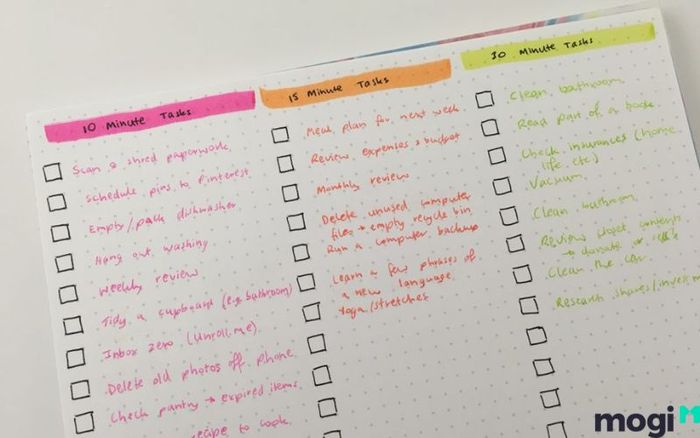 10 Minute Tasks
Scan & shred paperwork
Schedule pins to Pinterest
Empty/pack dishwasher
Hang out washing
Weekly review
Tidy a cupboard (e.g. bathroom)
Inbox zero (Unroll.me)
Delete old photos off phone
Check pantry → expired items
recipe to cook
15 Minute Tasks
Meal plan for next week
Review expenses & budget
Monthly review
Delete unused computer
files + empty recycle bin
Run a computer backup
Learn a few phrases of
a new language
Yoga/stretches
30 Minute Tasks
Clean bathroom
Read part of a book
Check insurances (home,
life etc)
Vacuum
Clean bathroom
Review closet contents
→ donate or
Clean the car
Research shares/invest
mogi